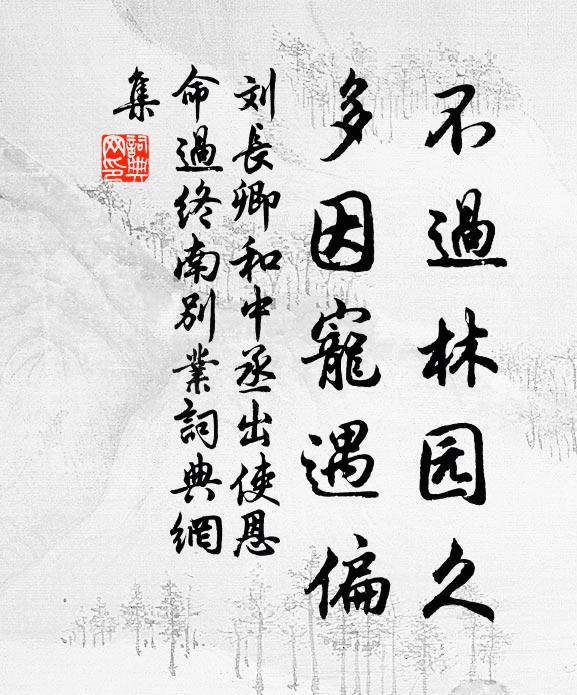 不過林园久
多因寵遇偏
刘長卿和中丞出使恩
命過终南别業詞典網
集
詞典
网印